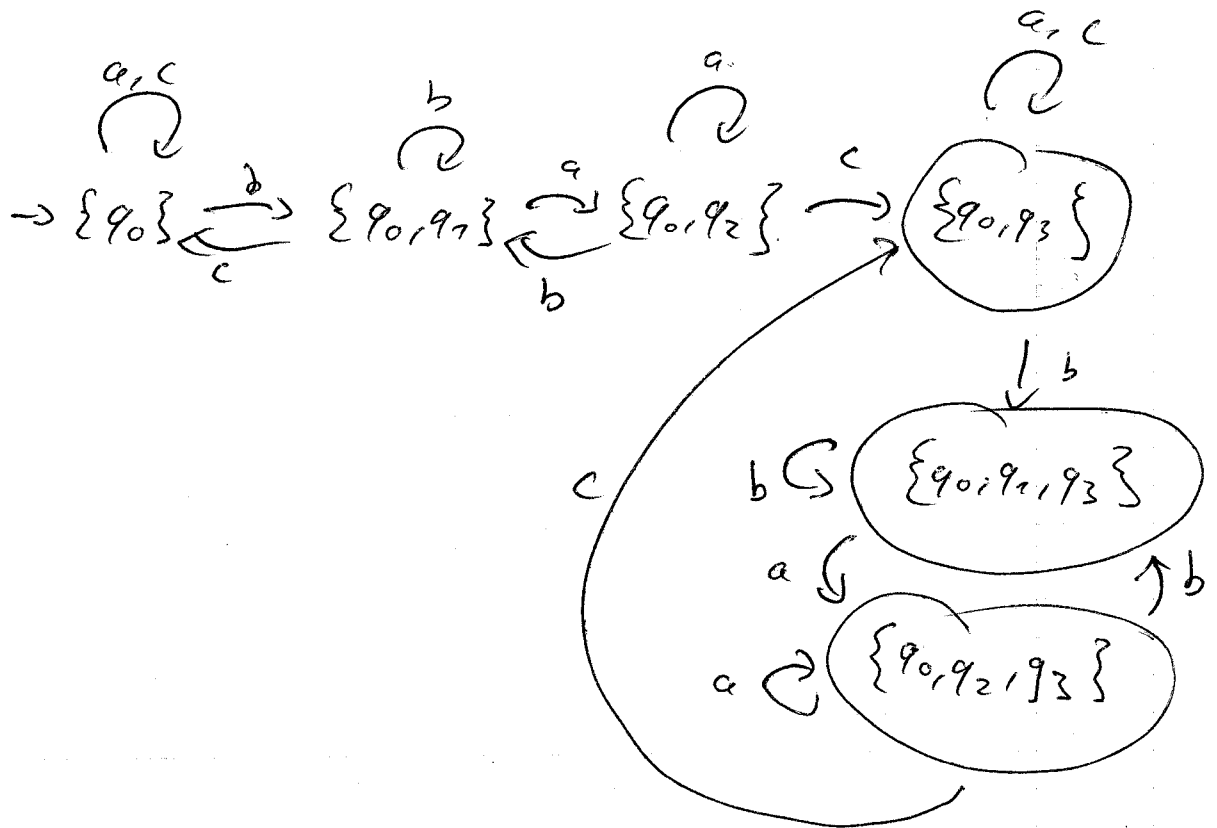 a, c
b
a
a, c
→ {q₀} b {q₀, q₁} a {q₀, q₂} c {q₀, q₃}
c
b
b
c
b {q₀, q₁, q₃}
a
b
a {q₀, q₂, q₃}